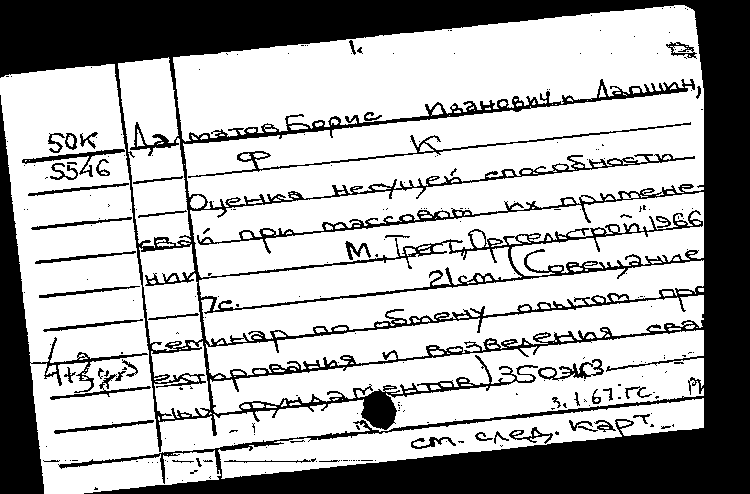 50К
5546
Далматов, Борис Иванович и Лапшин,
Ф К
Оценка несущей способности
свай при массовом их примене-
нии.
М., Трест „Оргсельстрой", 1966
7с. 21см. (Совещание
семинар по обмену опытом про
ектирования и возведения свай
ных фундаментов) 350экз.
3.1.67. ГС.
см. след. карт.